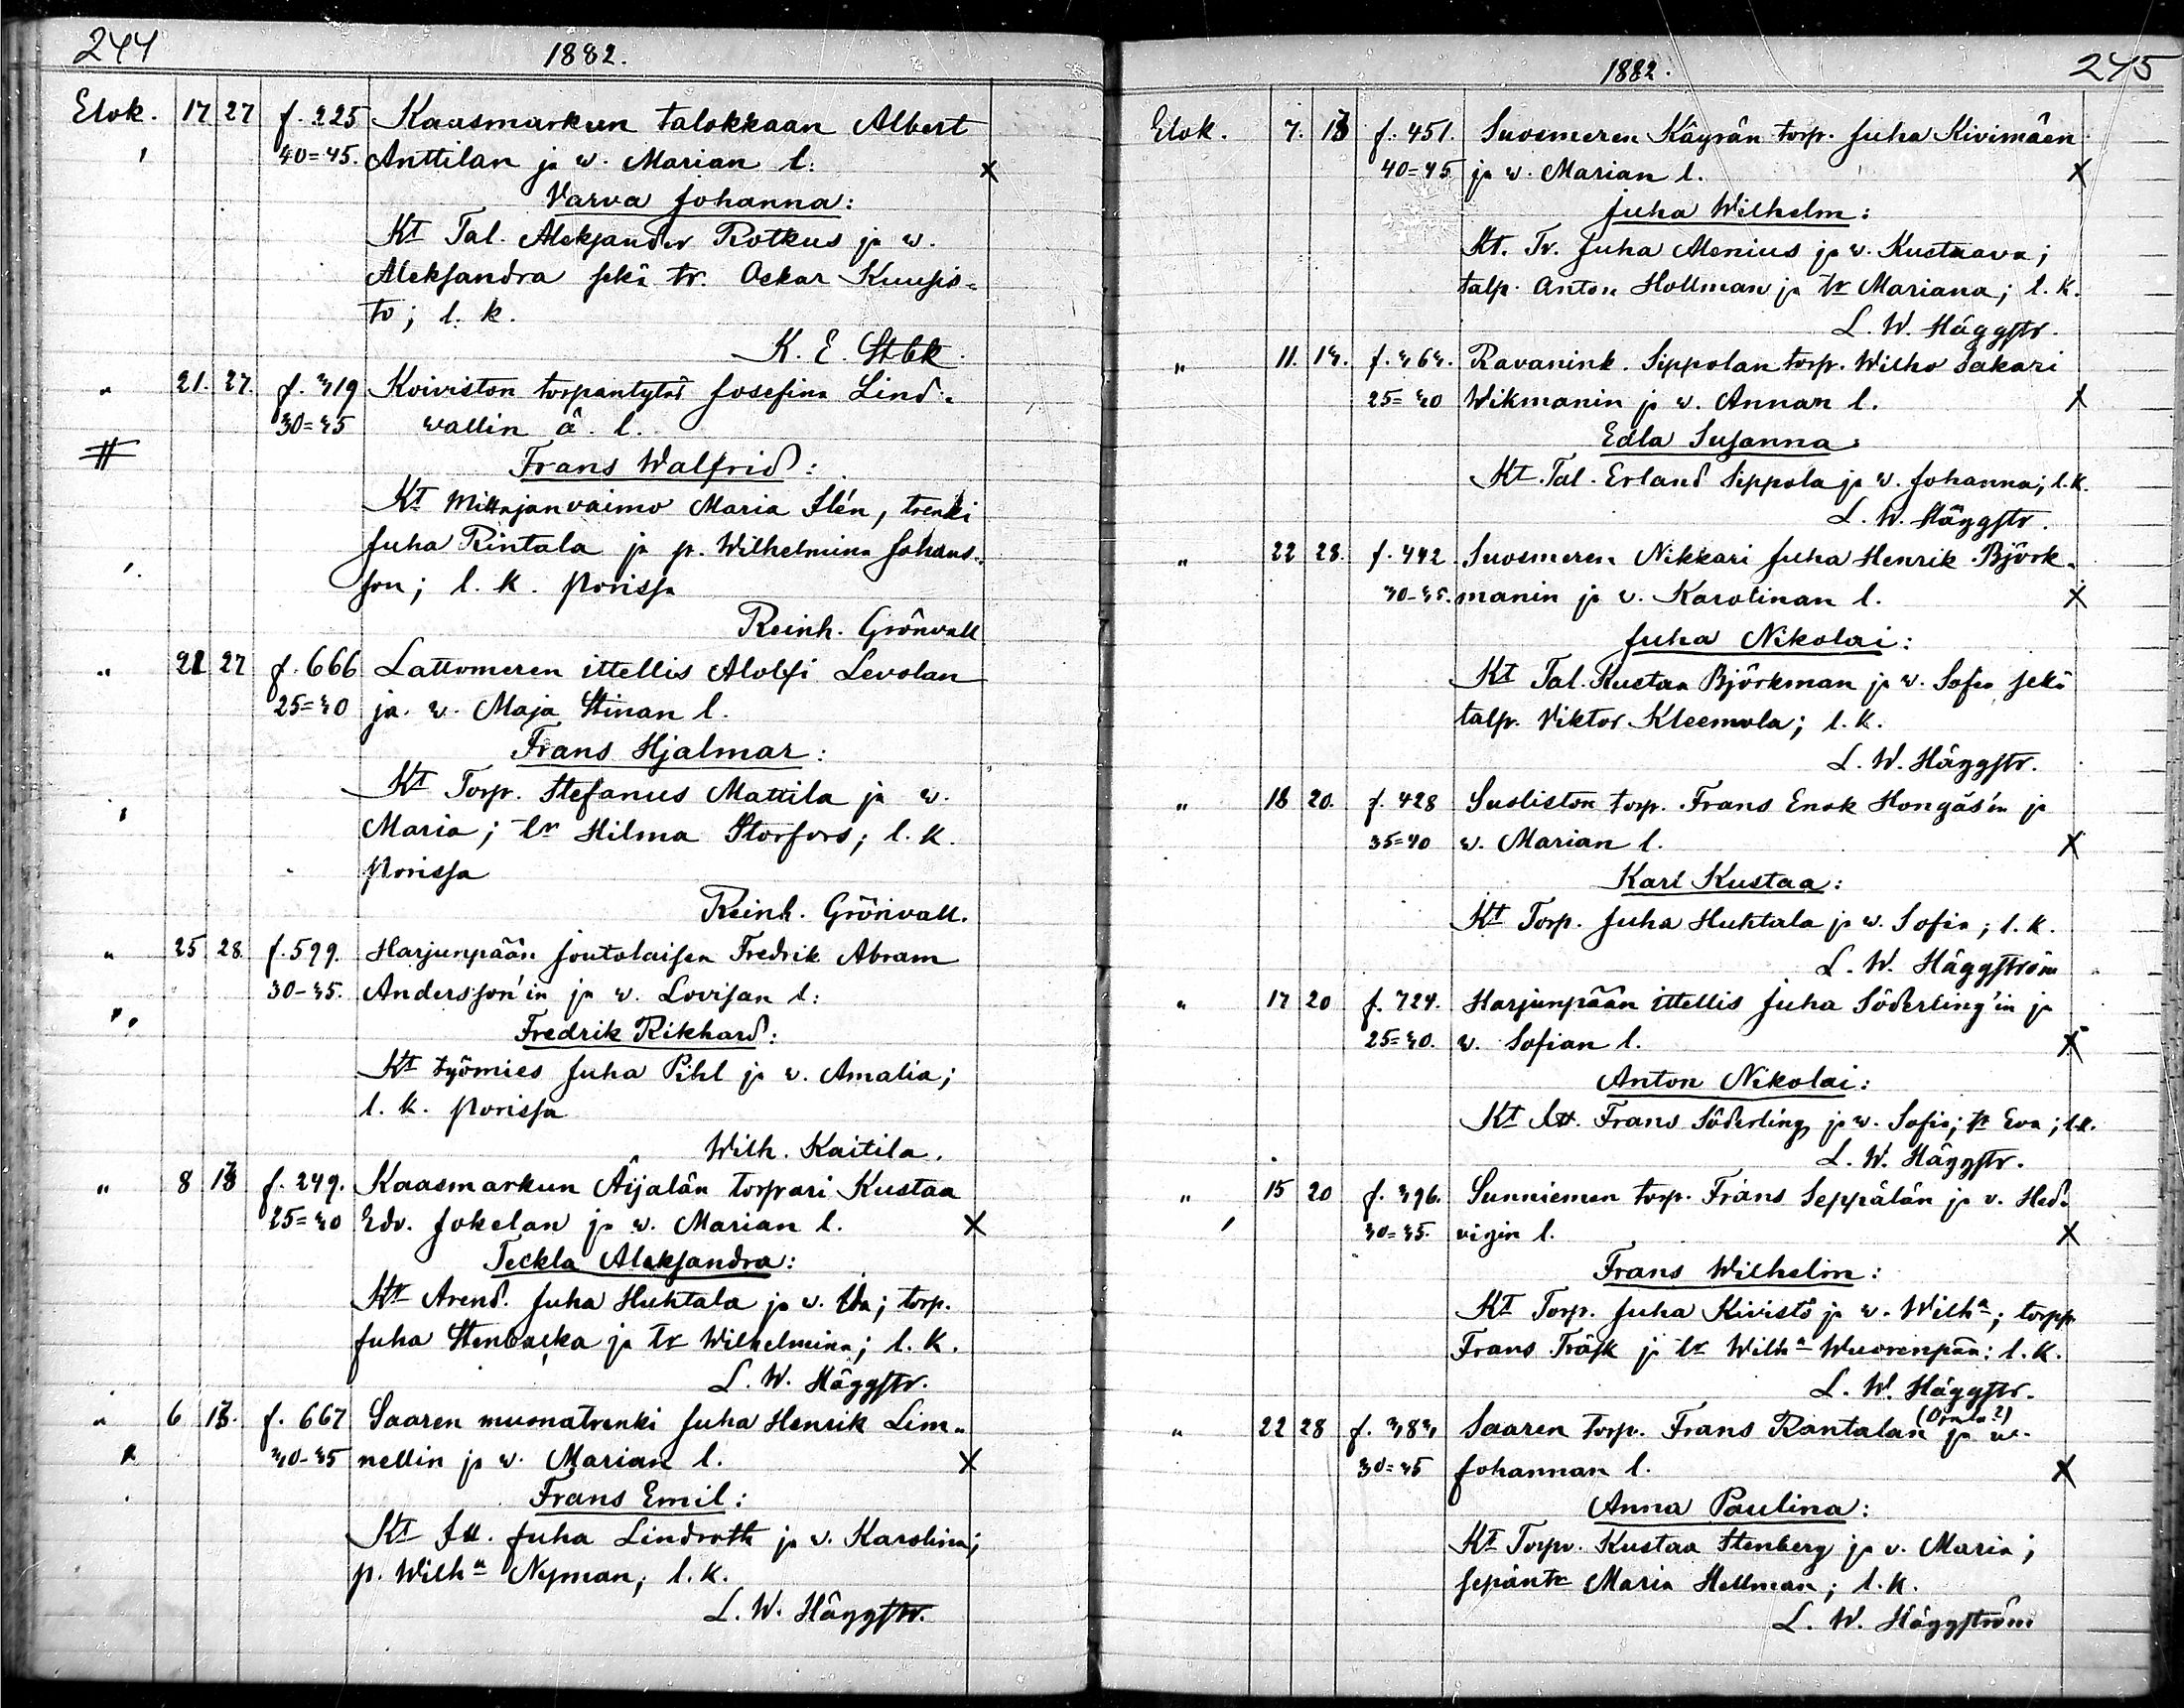 244
1882.
Elok. 17 27 f. 225 Kaasmarkun talokkaan Albert
40=45. Anttilan ja w. Marian l. X
Varva Johanna:
Kt Tal. Aleksander Rotkus ja w.
Aleksandra sekä tr. Oskar Kuusis-
to; l. k.
K. E. Stbk.
" 21. 27. f. 319 Koiviston torpantytär Josefina Lind-
30=35 wallin ä. l.
# Frans Walfrid:
Kt Mittajanvaimo Maria Ilén, trenki
Juha Rintala ja p. Wilhelmina Johans-
son; l. k. Porissa
Reinh. Grönvall
" 21 27 f. 666 Lattomeren ittellis Adolfi Levolan
25=30 ja w. Maja Stinan l.
Frans Hjalmar:
Kt Torp. Stefanus Mattila ja w.
Maria; tr Hilma Storfors; l. k.
Porissa
Reinh. Grönvall.
" 25 28. f. 599. Harjunpään joutolaisen Fredrik Abram
30-35. Andersson'in ja w. Lovisan l:
Fredrik Rikhard:
Kt työmies Juha Pihl ja w. Amalia;
l. k. Porissa
Wilh. Kaitila.
" 8 13 f. 249. Kaasmarkun Äijälän torpari Kustaa
25=30 Edv. Jokelan ja w. Marian l. X
Teckla Aleksandra:
Kt Arend. Juha Huhtala ja w. Ida; torp.
Juha Stenbacka ja tr Wilhelmina; l. k.
L. W. Häggstr.
" 6 13. f. 667 Saaren muonatrenki Juha Henrik Lim-
30-35 nellin ja w. Marian l. X
Frans Emil:
Kt Itt. Juha Lindroth ja w. Karolina;
p. Wilhª Nyman; l. k.
L. W. Häggstr.
1882. 245
Elok. 7. 13 f. 451. Suosmeren Käyrän torp. Juha Kivimäen
40=45 ja w. Marian l. X
Juha Wilhelm:
Kt. Tr. Juha Alenius ja w. Kustaava;
talp. Anton Hollman ja tr Mariana; l. k.
L. W. Häggstr.
" 11. 13. f. 363. Ravanink. Sippolan torp. Wilho Sakari
25=30 Wikmanin ja w. Annan l. X
Edla Susanna:
Kt. Tal. Erland Sippola ja w. Johanna; l. k.
L. W. Häggstr.
" 22 28. f. 442. Suosmeren Nikkari Juha Henrik Björk-
30-35. manin ja v. Karolinan l. X
Juha Nikolai:
Kt Tal. Kustaa Björkman ja w. Sofia sekä
talp. Viktor Kleemola; l. k.
L. W. Häggstr.
" 18 20. f. 428 Susliston torp. Frans Enok Hongäs'in ja
35=40 w. Marian l. X
Karl Kustaa:
Kt Torp. Juha Huhtala ja w. Sofia; l. k.
L. W. Häggström
" 17 20 f. 724. Harjunpään ittellis Juha Söderling'in ja
25=30. w. Sofian l. X
Anton Nikolai:
Kt Itt. Frans Söderling ja w. Sofia; tr Eva; l. k.
L. W. Häggstr.
" 15 20 f. 396. Sunniemen torp. Frans Seppälän ja v. Hed-
30=35. vigin l. X
Frans Wilhelm:
Kt Torp. Juha Kivistö ja w. Wilhª; torpp.
Frans Träsk ja tr Wilhª Wuorenpää; l. k.
L. W. Häggstr.
" 22 28 f. 383 Saaren torp. Frans Rantalan ja w.
30=35 Johannan l. X
Anna Paulina:
Kt Torp. Kustaa Stenberg ja v. Maria;
sepäntr Maria Hellman; l. k.
L. W. Häggström